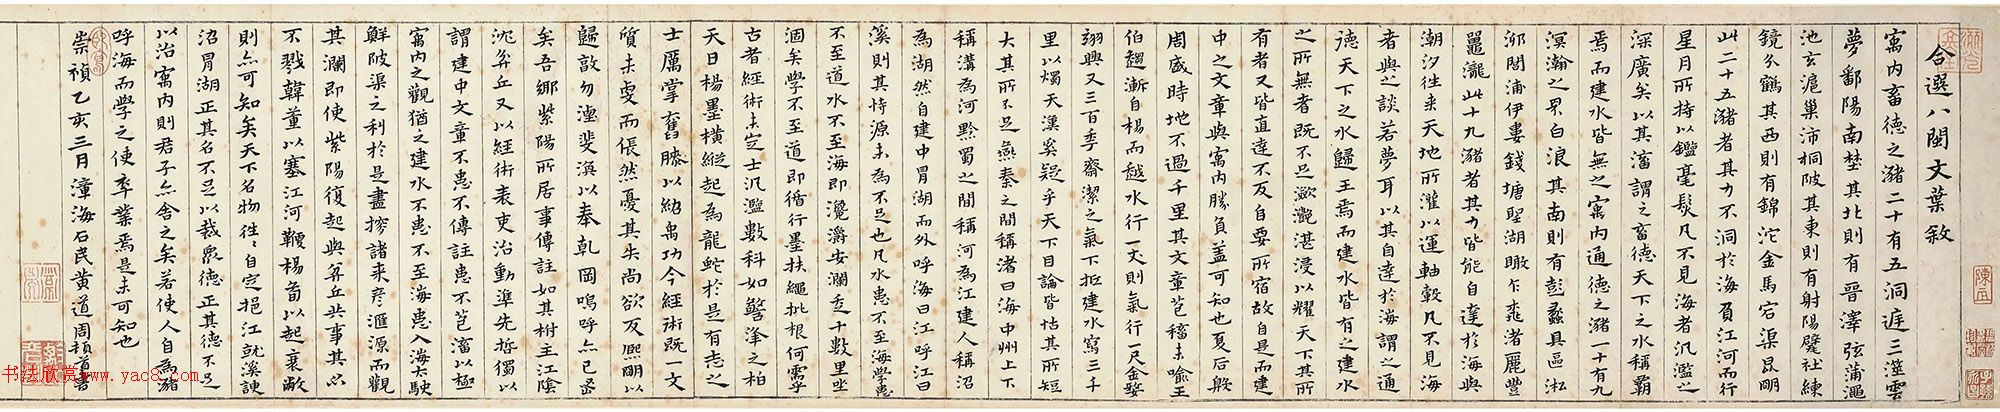 合選八閩文葉敘
寓內畜德之瀦二十有五洞庭三澨雲
夢鄱陽南埜其北則有晉澤弦蒲澠
池玄扈巢沛桐陂其東則有射陽甓社練
鏡分鶴其西則有錦沱金馬宕渠昆明
此二十五瀦者其力不洞於海負江河而行
星月所持以鑑毫髮凡不見海者汎濫之
深廣矣以其瀋謂之畜德天下之水稱霸
焉而建水皆無之寓內通德之瀦一十有九
溟瀚之界白浪其南則有彭蠡具區淞
泖閤浦伊婁錢塘聖湖暾乍乖渚麗豐
鼉瀧此十九瀦者其力皆能自達於海與
潮汐往来天地所灌以運軸轂凡不見海
者與之談若夢耳以其自達於海謂之通
德天下之水歸王焉而建水皆有之建水
之所無者既不足瀲灔湛浸以耀天下其所
有者又皆直達不反自要所宿故自是而建
中之文章與寓內勝負蓋可知也夏后殷
周盛時地不過千里其文章芭稿未喻王
伯趨漸自楊而越水行一丈則氣行一尺金婺
翊興又三百季齋潔之氣下拒建水寫三千
里以燭天漢奚疑乎天下目論皆怙其所短
大其所不足燕秦之間稱渚曰海中州上下
稱溝為河黔蜀之間稱河為江建人稱沼
為湖然自建中冒湖而外呼海曰江呼江曰
溪則其恃源未為不足也凡水患不至海學患
不至道水不至海即灔灂安瀾禿十數里坐
涸矣學不至道即循行墨扶繩批根何需乎
古者經術未岦士汎濫數科如簪漨之柏
天日楊墨橫縱起為龍蛇於是有志之
士厲掌奮膝以紹禹功今經術既一文
質未虔而倀然憂其失尚欲反熙朙以
歸敦勿湮斐滇以奉軋罔嗚呼亦已窓
矣吾鄉紫陽所居事傳註如其柎主江陰
沈弅丘又以經術表吏治動準先哲獨以
謂建中文章不患不傳註患不芭瀋以極
寓內之觀猶之建水不患不至海患入海大駛
鮮陂渠之利於是盡搒諸来彥滙源而觀
其瀾即使紫陽復起與弅丘共事其必
不戮韓董以塞江河鞭楊荀以起衰敝
則亦可知矣天下名物徃〻自定挹江就溪諫
沼冒湖正其名不足以裁眾德正其德不足
以治寓內則君子亦舍之矣若使人自為瀦
呼海而學之使卒業焉是未可知也
崇禎乙亥三月漳海石民黃道周頓首書
书法欣赏 www.yac8.com